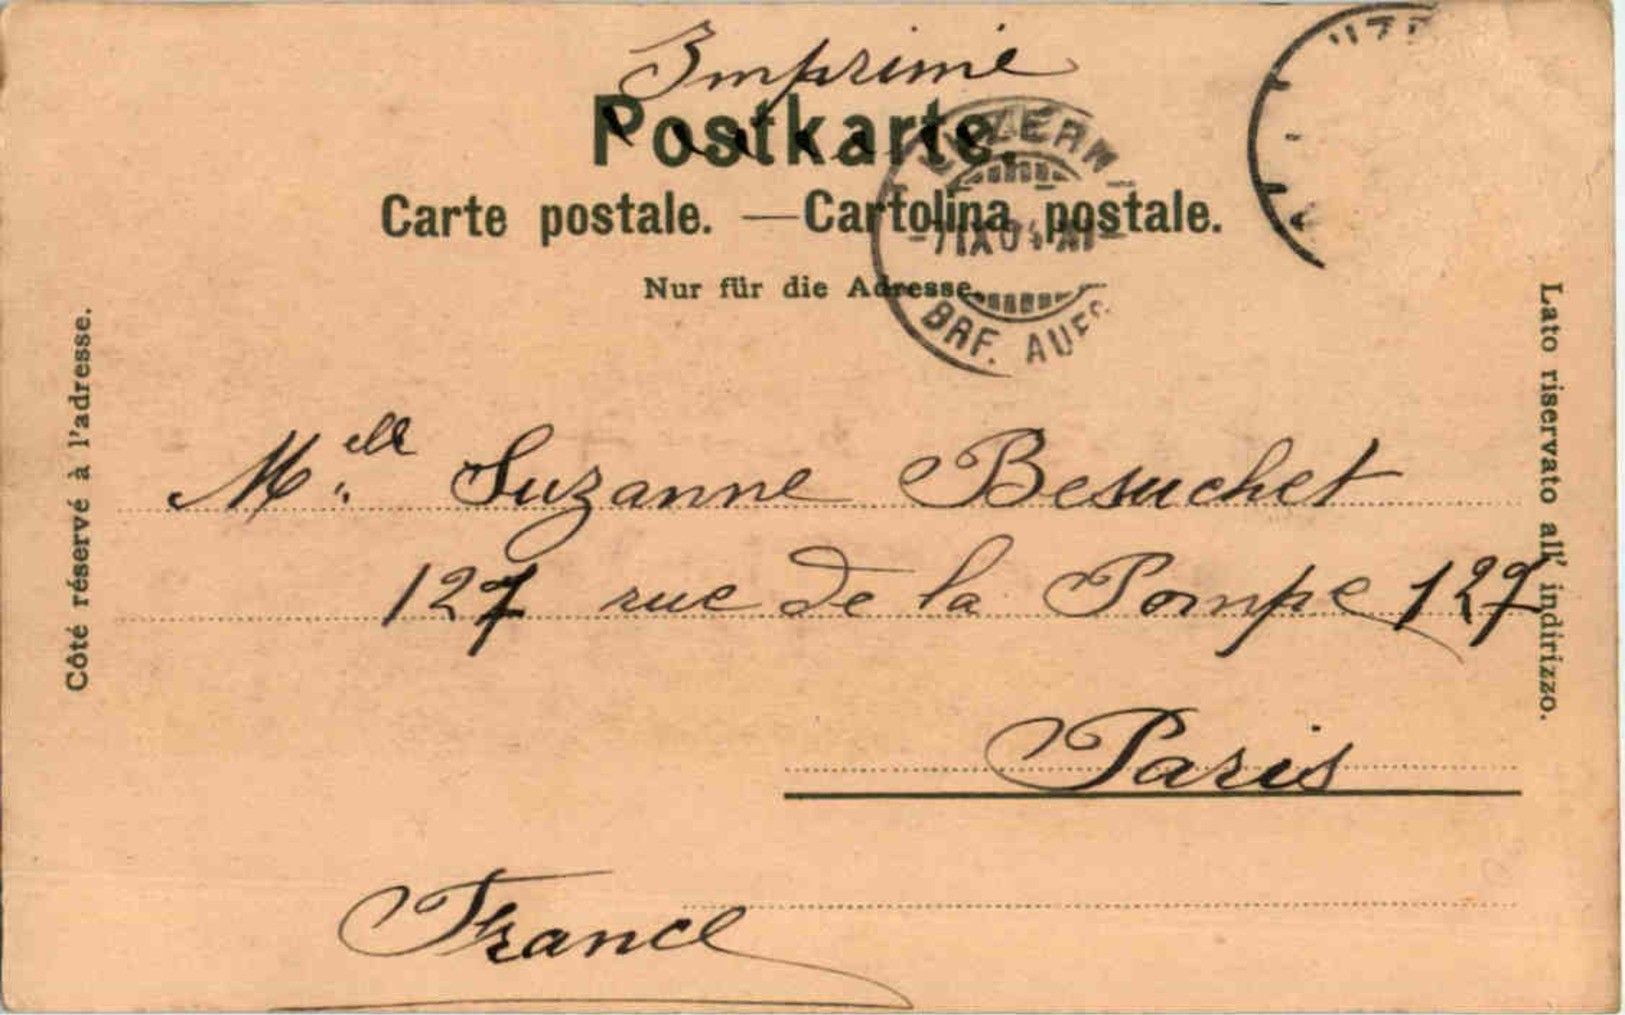 Imprimé
Postkarte.
Carte postale. — Cartolina postale.
Nur für die Adresse.
LUZERN
BRF. AUFG
Côté réservé à l'adresse.
Lato riservato all' indirizzo.
M.elle Suzanne Besuchet
127 rue de la Pompe 127
Paris
France